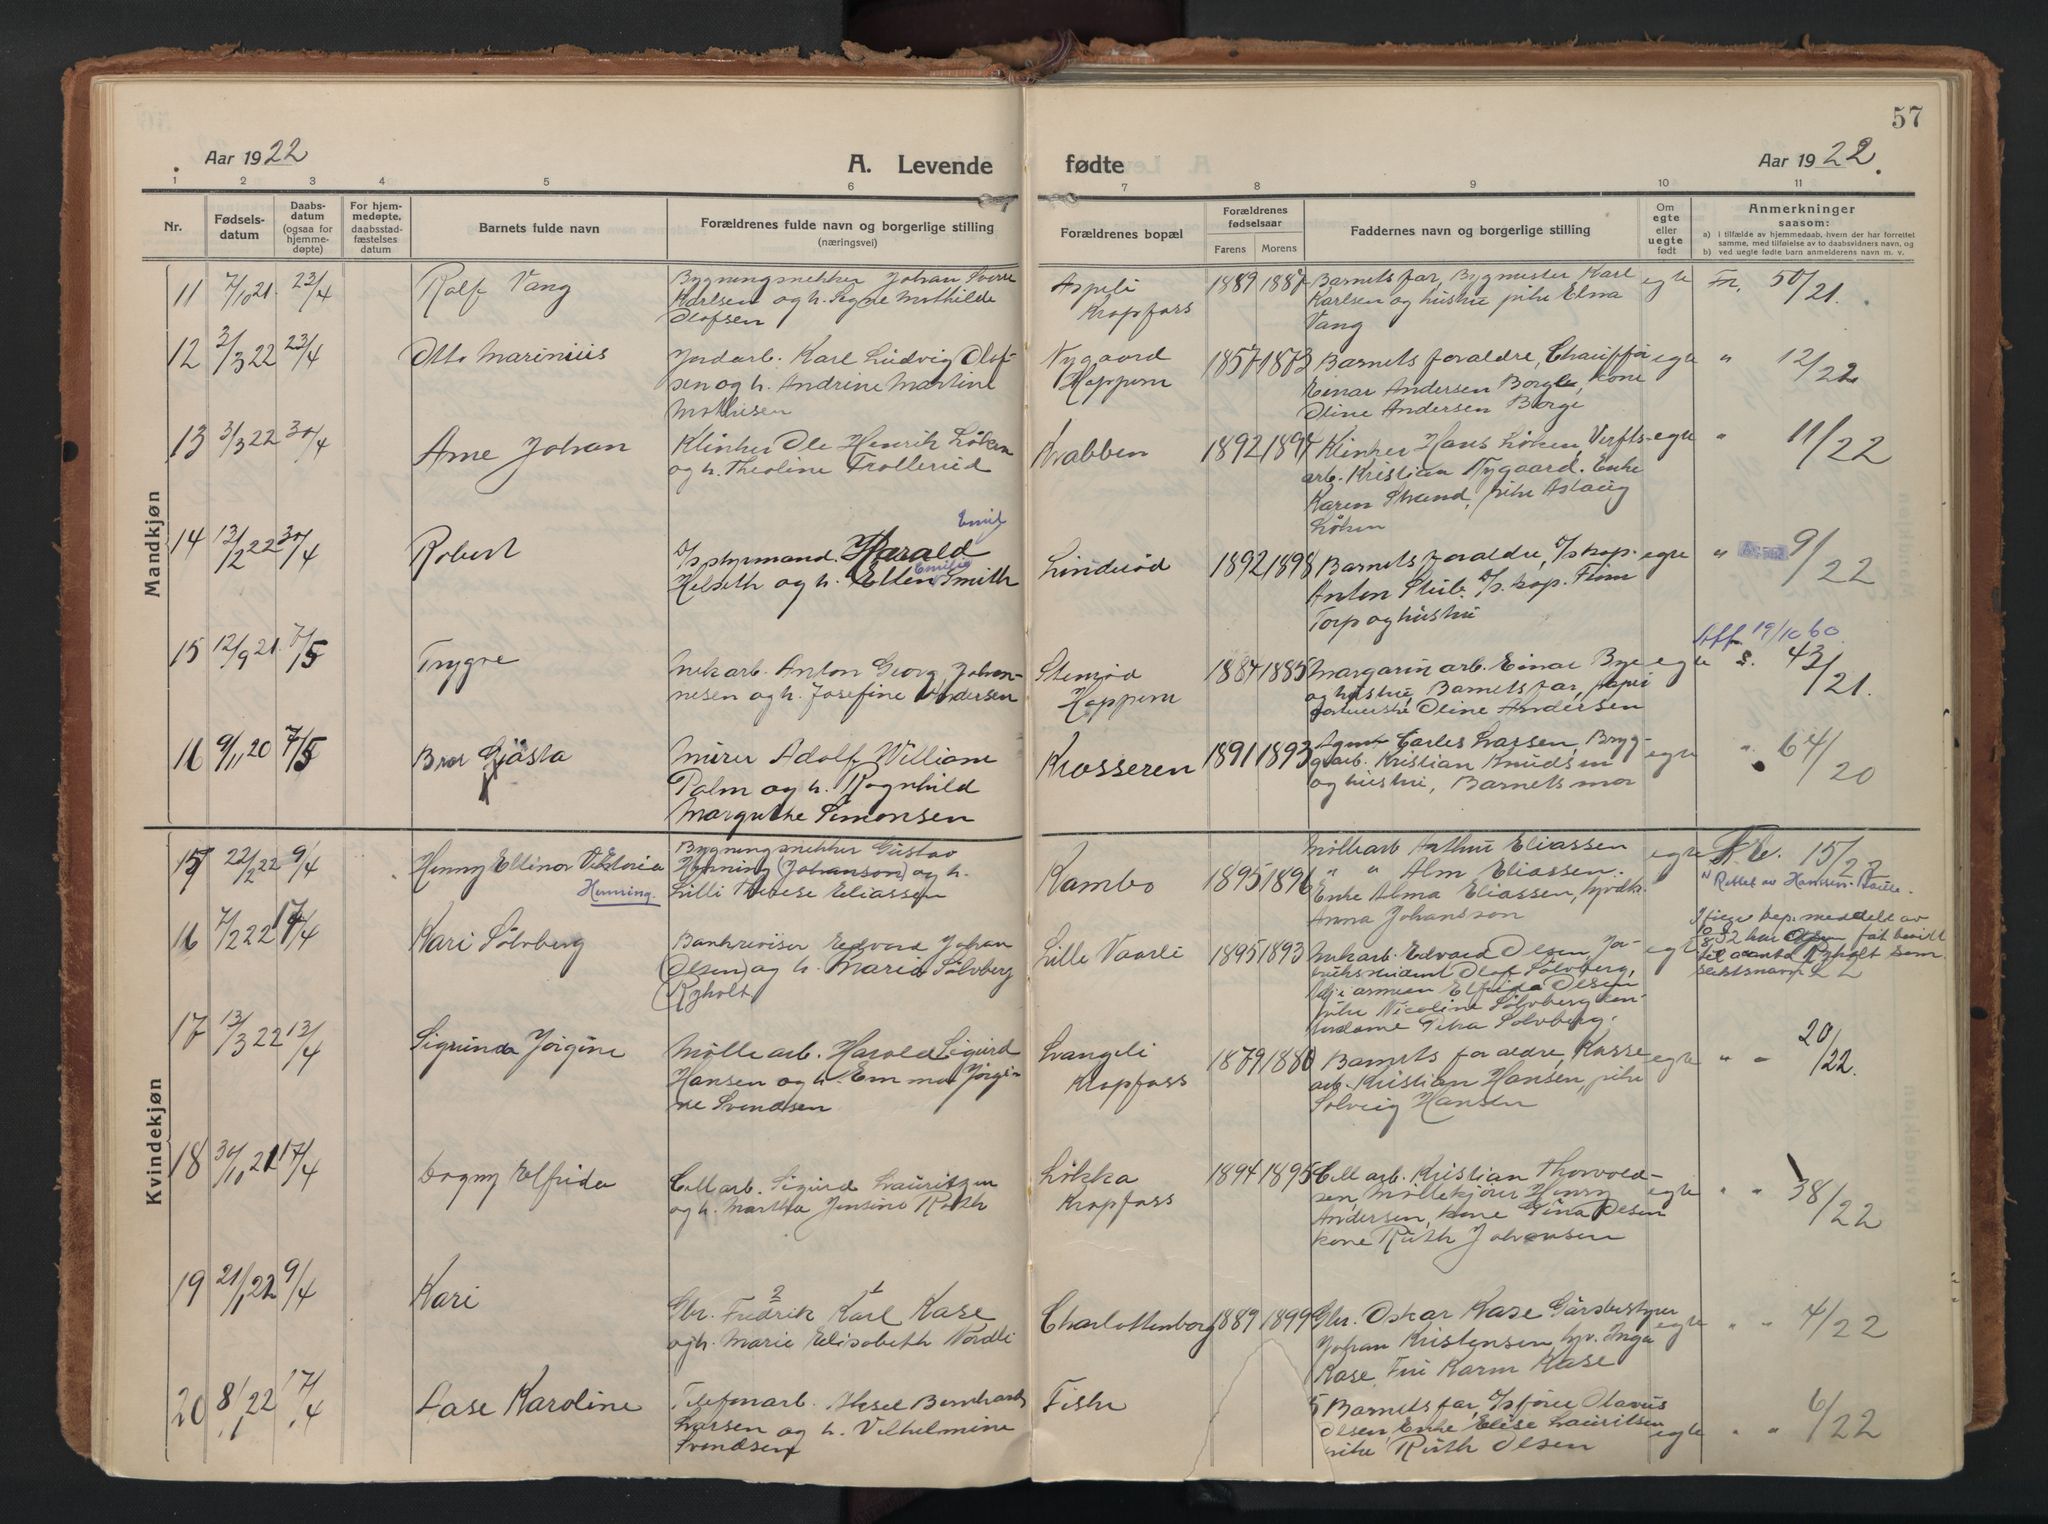 57
Aar 1922
A. Levende
fødte
Aar 1922.
1 2 3 4 5 6 7 8 9 10 11
Nr.
Fødsels-
datum
Daabs-
datum
(ogsaa for
hjemme-
døpte)
For hjem-
medøpte,
daabsstad-
fæstelses
datum
Barnets fulde navn
Forældrenes fulde navn og borgerlige stilling
(næringsvei)
Forældrenes bopæl
Forældrenes
fødselsaar
Farens Morens
Faddernes navn og borgerlige stilling
Om
egte
eller
uegte
født
Anmerkninger
saasom:
a) i tilfælde av hjemmedaab, hvem der har forrettet
samme, med tilføielse av to daabsvidners navn, og
b) ved uegte fødte barn anmelderens navn m. v.
Mandkjøn
11 7/10 21. 23/4 Rolf Vang
Bygningsnekker Johan Sverre
Karlsen og h. Signe Mathilde
Olafsen
Aspeli
Kropfoss
1889 1887
Barnets far, Bygmester Karl
Karlsen og hustru, pike Elna
Vang
egte Fr. 50/21.
12 2/3 22 23/4 Otto Marinius
Jordarb. Karl Ludvig Olaf-
sen og h. Andrine Martine
Mathisen
Nygaard
Hoppern
1857 1873
Barnets foraldre, Chauffør
Einar Andersen Borge, kone
Oline Andersen Borge
egte " 12/22
13 3/3 22 30/4 Arne Johan
Klinker Ole Henrik Løken
og h. Theoline Trollerud
Krabben
1892 1894
Klinker Hans Løken, Verfts-
arb. Kristian Nygaard. Enke
Karen Strand, pike Aslaug
Løken
egte " 11/22
14 13/2 22 30/4 Robert
Emil
styrmand Harald
Emilie
Helseth og h. Ellen Smith
Linderød
1892 1898
Barnets foraldre,
Anton Stub. Finn
Torp og hustru
egte " 9/22
15 12/9 21. 7/5 Trygve
Anton Georg Johan-
nesen og h. Josefine Andersen
Stenrød
Hoppern
1884 1885
Margarin arb. Einar Bye
og hustru, Barnets far, papir
Oline Andersen
egte 19/10 60 43/21.
16 9/11 20 7/5 Bror Gøsta
Murer Adolf William
Palm og h. Ragnhild
Margrethe Simonsen
Krosseren
1891 1893
Agent Carles Lassen, Bryg-
garb. Kristian Knudsen
og hustru, Barnets mor
egte " 64/20
Kvindekjøn
15 22/2 22 9/4 Henny Ellinor Viktoria
Henning.
Bygningsnekker Gustav
Henning (Johanson) og h.
Lilli Therese Eliassen
Kambo
1895 1896
Møllearb Arthur Eliassen
" " Alm Eliassen.
Enke Alma Eliassen,
Anna Johansson
egte Fr. 15/22
Rettet av Hanssen-
16 7/2 22 17/4 Kari Sølvberg
Bankrevisor Edvard Johan
(Olsen) og h. Maria Sølvberg
(Ryholt)
Lille Vaarli
1895 1893
Edvard Olsen,
student Olaf Sølvberg,
Elfrida Olsen
pike Nicoline Sølvberg
madame Petra Sølvberg.
egte
meddelt av
32 har Olsen fåt bevill
til å anta Ryholt som
slektsnavn
17 13/3 22 13/4 Sigrunda Jørgine
Møllearb. Harald Sigurd
Hansen og h. Emma Jørgi-
ne Svendsen
Svangeli
Kropfoss
1879 1880
Barnets foraldre, Kasse
arb. Kristian Hansen, pike
Solveig Hansen
egte " " 20/22.
18 30/10 21 17/4 Dagny Elfrida
Cell arb. Sigurd Lauritzen
og h. Martha Jensine Roth
Løkka
Kropfoss
1894 1895
Cell arb. Kristian Thorvald-
sen, Møllekjører Henry
Andersen, kone Gina Olsen
kone Ruth Johansen
egte " " 38/22
19 21/1 22 9/4 Kari
2 1
Gbr. Fredrik Karl Kase
og h. Marie Elisabeth Nordli
Charlottenborg
1889 1899
Gbr. Oskar Kase Gårdsbestyrer
Johan Kristensen, hjv. Inga
Kase, Fru Karen Kase
egte " " 4/22
20 8/1 22 17/4 Aase Karoline
Telefonarb. Aksel Bernhard
Larsen og h. Vilhelmine
Svendsen
Fiske
5 Barnets far, Olavus
Olsen, Enke Elise Lauritsen
pike Ruth Olsen
egte " " 6/22